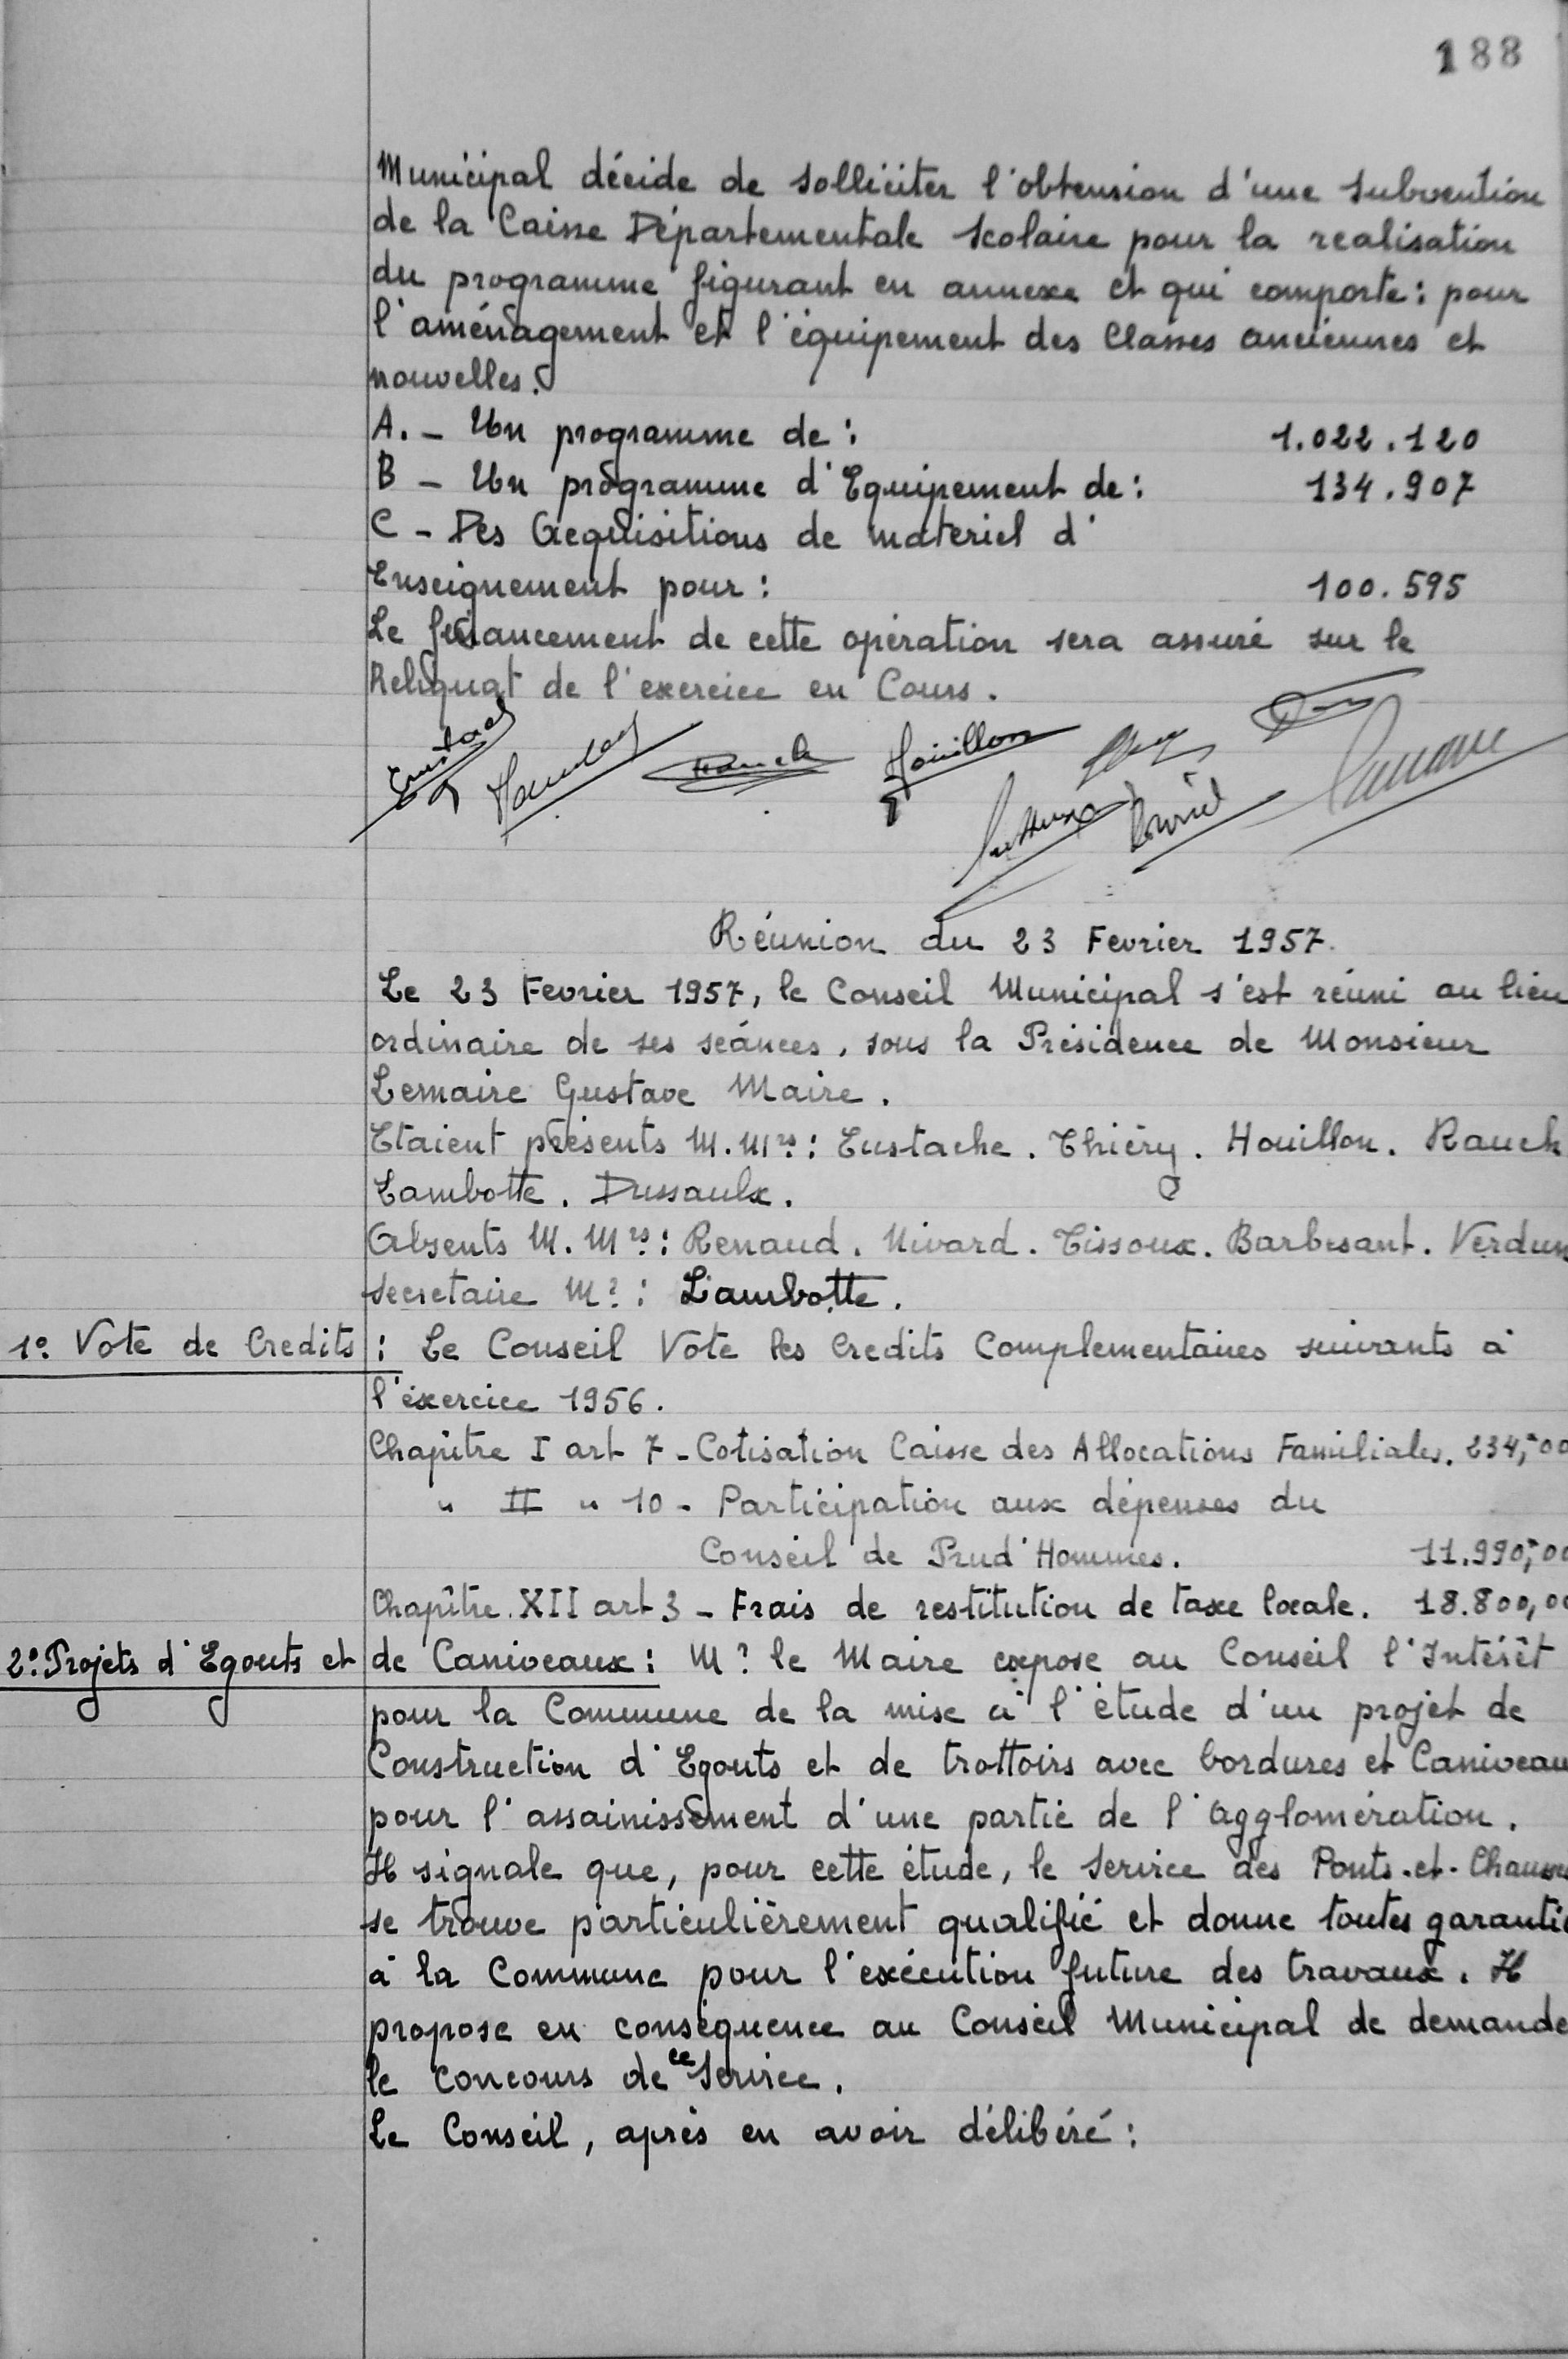 188
Municipal décide de solliciter l'obtension d'une subvention
de la Caisse Départementale Scolaire pour la realisation
du programme figurant en annexe et qui comporte : pour
l'aménagement et l'équipement des Classes anciennes et
nouvelles.
A. - Un programme de : 1.022.120
B - Un programme d'Equipement de : 134.907
C - Des Acquisitions de materiel d'
Enseignement pour : 100.595
Le financement de cette opération sera assuré sur le
Reliquat de l'exercice en Cours.
Eustache Rauch Houillon
Réunion du 23 Fevrier 1957.
Le 23 Fevrier 1957, le Conseil Municipal s'est réuni au lieu
ordinaire de ses séances, sous la Présidence de Monsieur
Lemaire Gustave Maire.
Etaient présents M.Mrs : Eustache. Thiéry. Houillon. Rauch
Lambotte. Dussaulx.
Absents M.Mrs : Renaud. Nivard. Tissoux. Barbesant. Verdun
Secretaire Mr : Lambotte.
1º. Vote de Credits : Le Conseil Vote les Credits Complementaires suivants à
l'éxercice 1956.
Chapitre I art 7 - Cotisation Caisse des Allocations Familiales. 234,-00
" II " 10 - Participation aux dépenses du
Conseil de Prud'Hommes. 11.990,-00
Chapître XII art 3 - Frais de restitution de taxe locale. 18.800,00
2º. Projets d'Egouts et de Caniveaux : Mr le Maire expose au Conseil l'Intérêt
pour la Commune de la mise à l'étude d'un projet de
Construction d'Egouts et de trottoirs avec bordures et Caniveau
pour l'assainissement d'une partie de l'agglomération.
Il signale que, pour cette étude, le Service des Ponts-et-Chauss
se trouve particulièrement qualifié et donne toutes garantie
à la Commune pour l'exécution future des travaux. Il
propose en conséquence au Conseil Municipal de demande
le concours de ce Service.
Le Conseil, après en avoir délibéré :